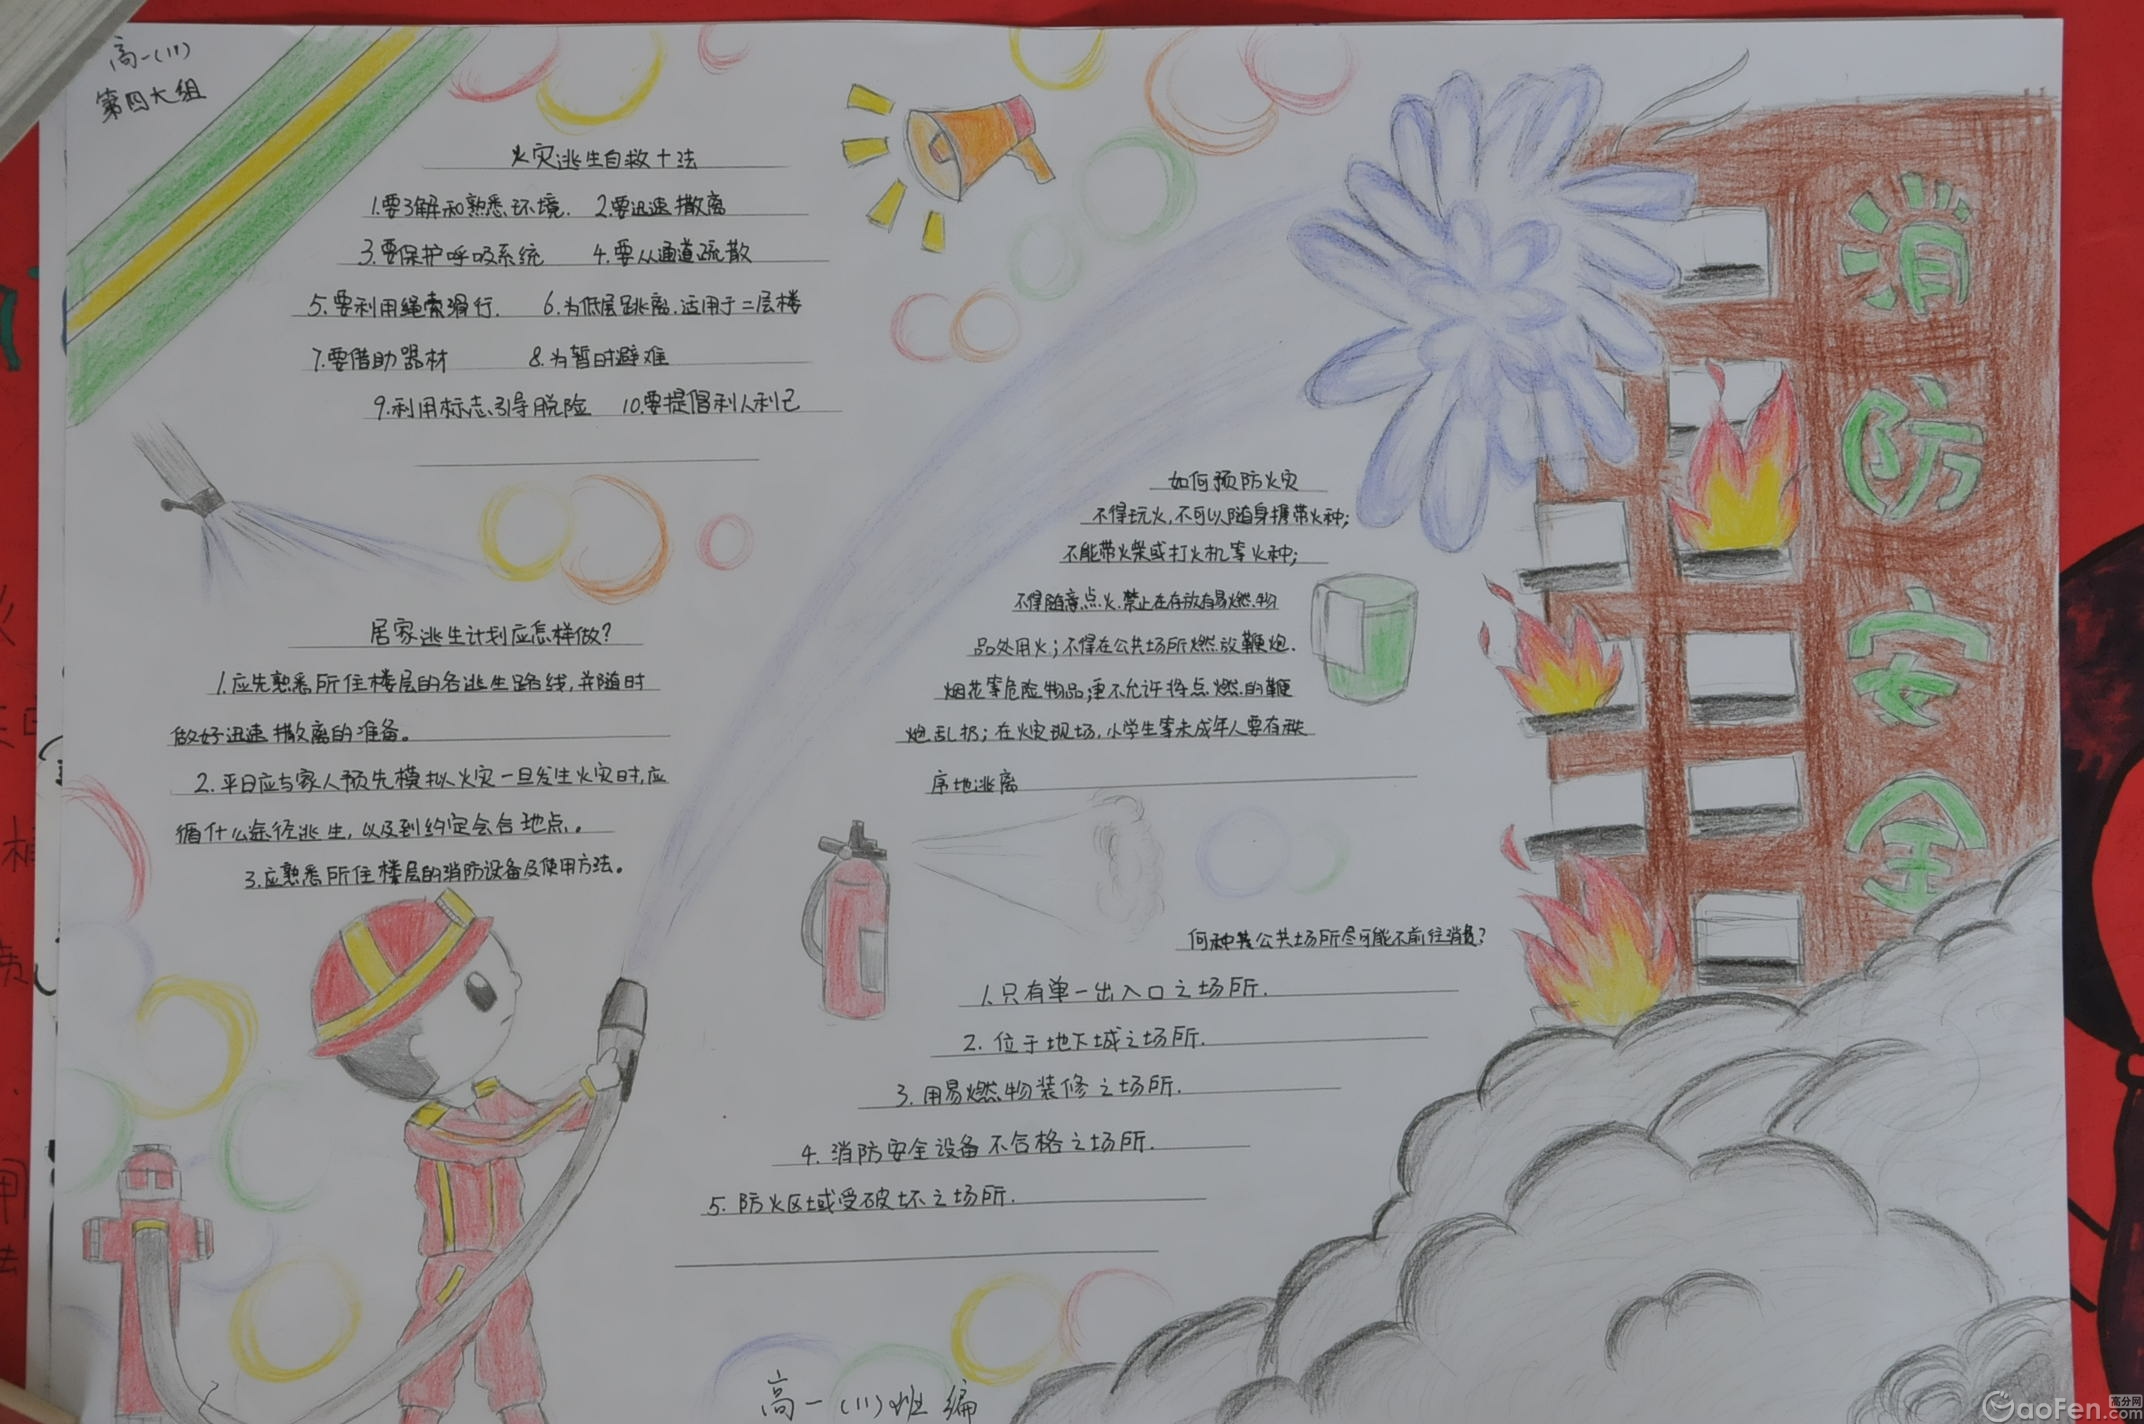 高一(11)
第四大组
火灾逃生自救十法
1.要了解和熟悉环境. 2.要迅速撒离
3.要保护呼吸系统 4.要从通道疏散
5.要利用绳索滑行. 6.为低层跳离.适用于二层楼
7.要借助器材 8.为暂时避难
9.利用标志引导脱险 10.要提倡利人利己
居家逃生计划应怎样做?
1.应先熟悉所住楼层的各逃生路线,并随时
做好迅速撒离的准备。
2.平日应与家人预先模拟火灾一旦发生火灾时,应
循什么途径逃生,以及到约定会合地点。
3.应熟悉所住楼层的消防设备及使用方法。
如何预防火灾
不得玩火,不可以随身携带火种;
不能带火柴或打火机等火种;
不得随意点火.禁止在存放有易燃物
品处用火;不得在公共场所燃放鞭炮.
烟花等危险物品;更不允许将点燃的鞭
炮乱扔;在火灾现场,小学生等未成年人要有秩
序地逃离
何种共公共场所尽可能不前往消费?
1.只有单一出入口之场所.
2.位于地下城之场所.
3.用易燃物装修之场所.
4.消防安全设备不合格之场所.
5.防火区域受破坏之场所.
消
防
安
全
高一(11)班编
GaoFen.com
高分网